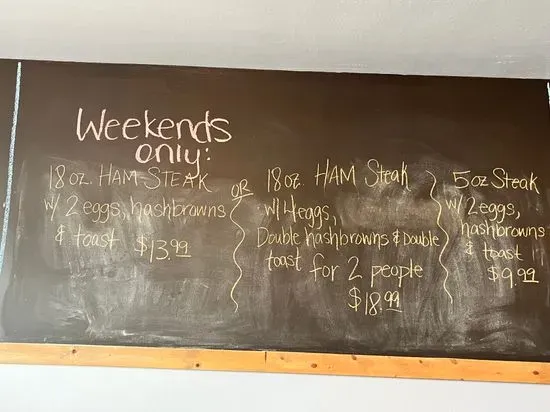 Weekends
only:
18 oz. HAM STEAK
w/ 2 eggs, hashbrowns
& toast $13.99
OR
18 oz. HAM Steak
w/ 4 eggs,
Double hashbrowns & Double
toast for 2 people
$18.99
5 oz Steak
w/ 2 eggs,
hashbrowns
& toast
$9.99